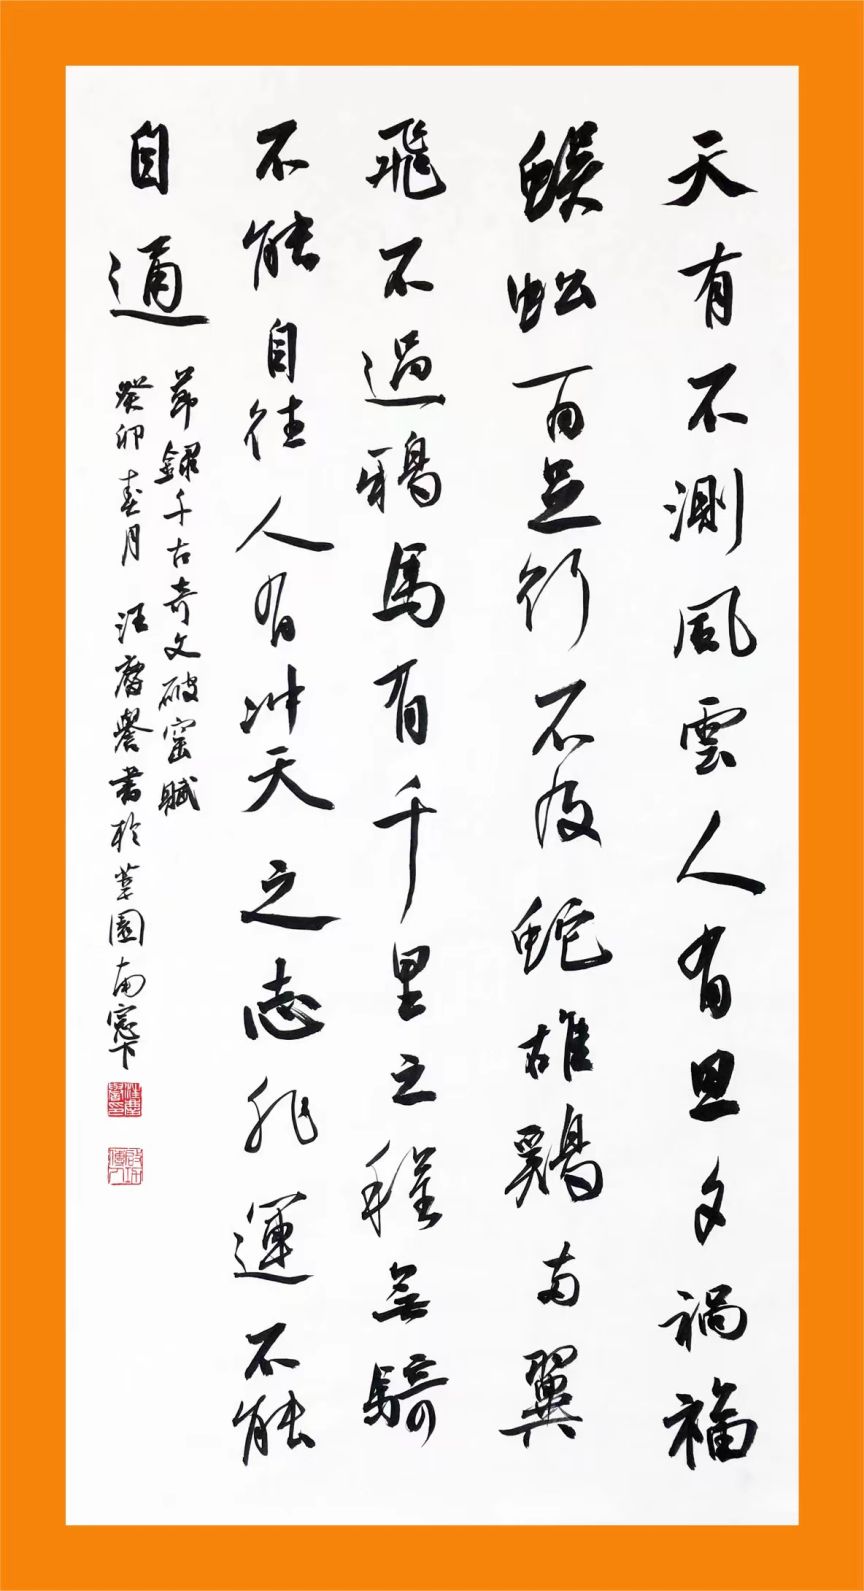 天有不測風雲人有旦夕禍福
蜈蚣百足行不及蛇雄鷄兩翼
飛不過鴉馬有千里之程無騎
不能自往人有冲天之志非運不能
自通
節錄千古奇文破窑賦
癸卯春月 汪慶譽書於園南窗下